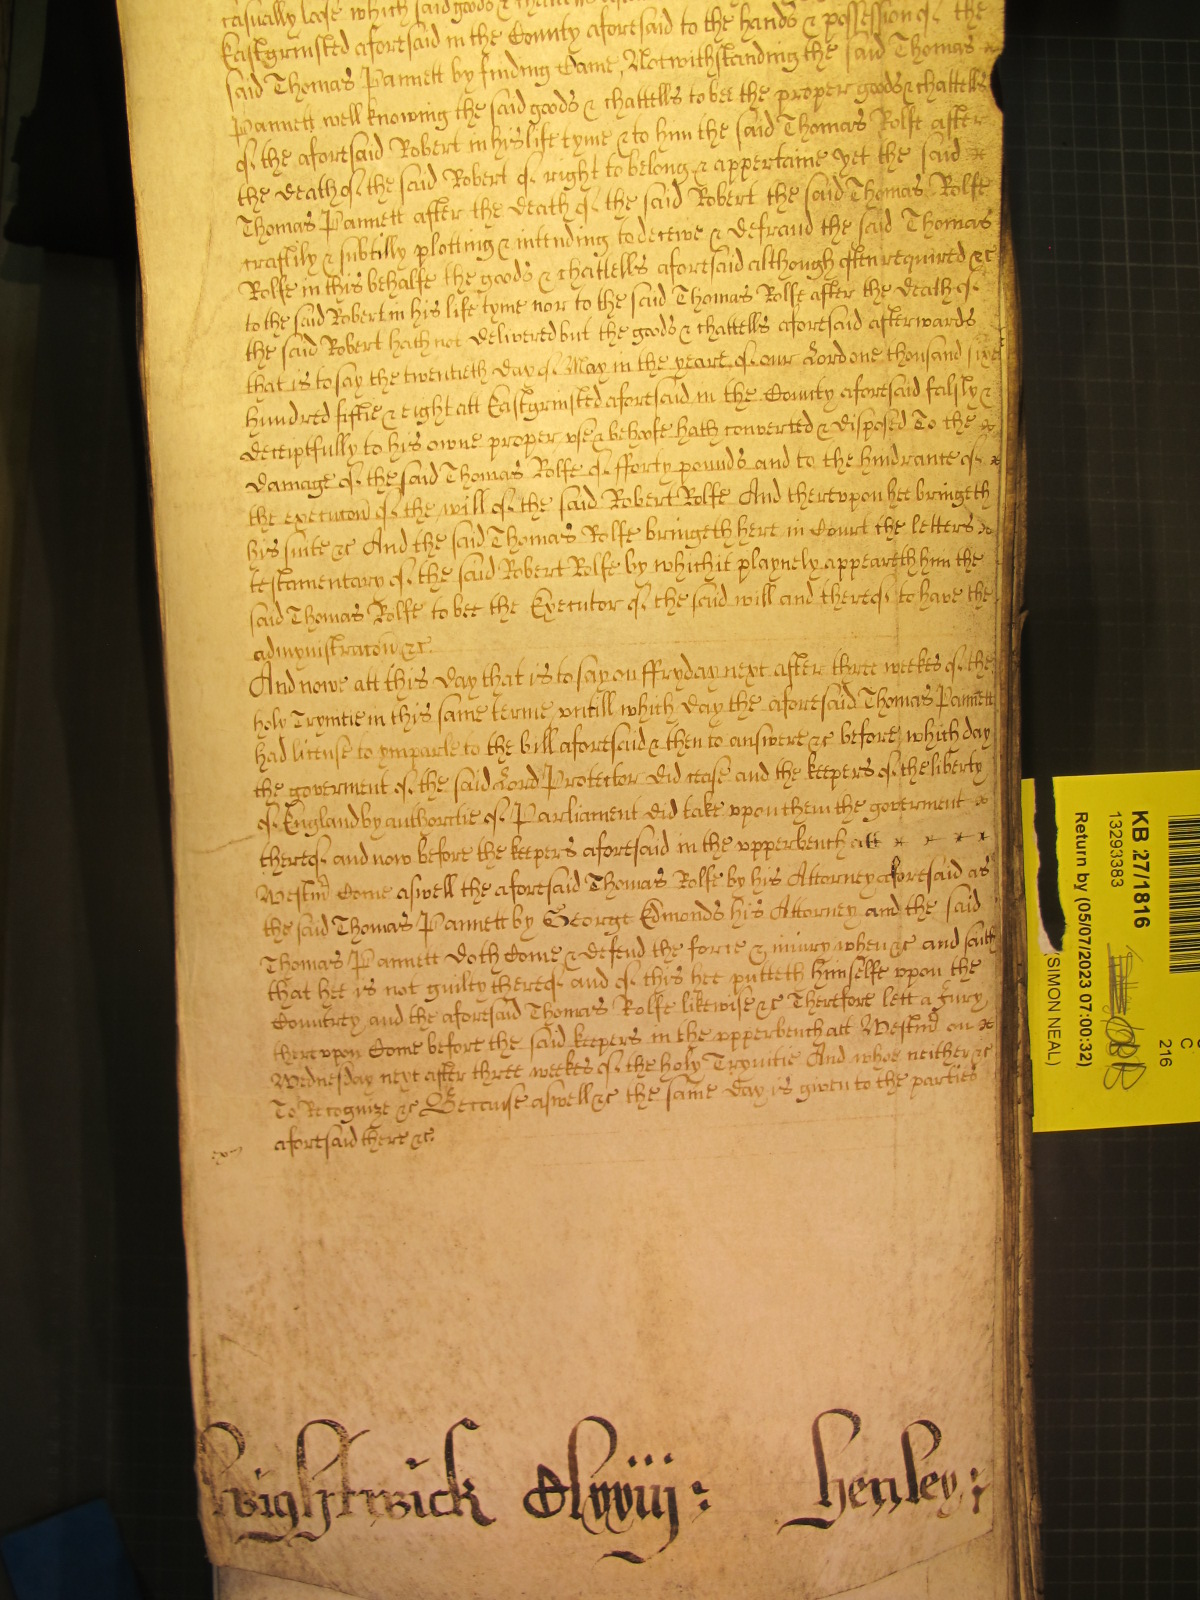 casually loose which said goods & chattells
Eastgrinsted aforesaid in the County aforesaid to the hands & possession of the
said Thomas Pannett by finding Came, Notwithstanding the said Thomas
Pannett well knowing the said goods & chattells to bee the proper goods & chattells
of the aforesaid Robert in his life tyme & to him the said Thomas Rolfe after
the death of the said Robert of right to belong & appertaine yet the said
Thomas Pannett after the death of the said Robert the said Thomas Rolfe
craftily & subtilly plotting & intending to deceive & defraud the said Thomas
Rolfe in this behalfe the goods & chattells aforesaid although often required &c
to the said Robert in his life tyme nor to the said Thomas Rolfe after the death of
the said Robert hath not delivered but the goods & chattells aforesaid afterwards
that is to say the twentieth day of May in the yeare of our Lord one thousand sixe
hundred fiftie & eight att Eastgrinsted aforesaid in the County aforesaid falsly &
deceiptfully to his owne proper use & behoofe hath converted & disposed To the
damage of the said Thomas Rolfe of fforty pounds and to the hindrance of
the execucon of the will of the said Robert Rolfe And thereupon hee bringeth
his suite &c And the said Thomas Rolfe bringeth here in Court the letters
testamentary of the said Robert Rolfe by which it playnely appeareth him the
said Thomas Rolfe to bee the Executor of the said will and thereof to have the
administracon &c.
And nowe att this day that is to say on ffryday next after three weekes of the
holy Trynitie in this same terme untill which day the aforesaid Thomas Pannett
had license to imparle to the bill aforesaid & then to answere &c before which day
the goverment of the said Lord Protector did cease and the keepers of the liberty
of England by authoritie of Parliament did take upon them the goverment
thereof and now before the keepers aforesaid in the upperbench att
Westmr Come aswell the aforesaid Thomas Rolfe by his Attorney aforesaid as
the said Thomas Pannett by George Edmonds his Attorney and the said
Thomas Pannett doth Come & defend the force & iniury when &c and saith
that hee is not guilty thereof and of this hee putteth himselfe upon the
Countrey and the aforesaid Thomas Rolfe likewise &c Therefore lett a Jury
thereupon Come before the said keepers in the upperbench att Westmr on
Wednesday next after three weekes of the holy Trynitie And whoe neither &c
To Recognize &c Because aswell &c the same day is given to the parties
aforesaid there &c.
Wightwick Clxviij: henley:
KB 27/1816
13293383
Return by (05/07/2023 07:00:32)
(SIMON NEAL)
C
216